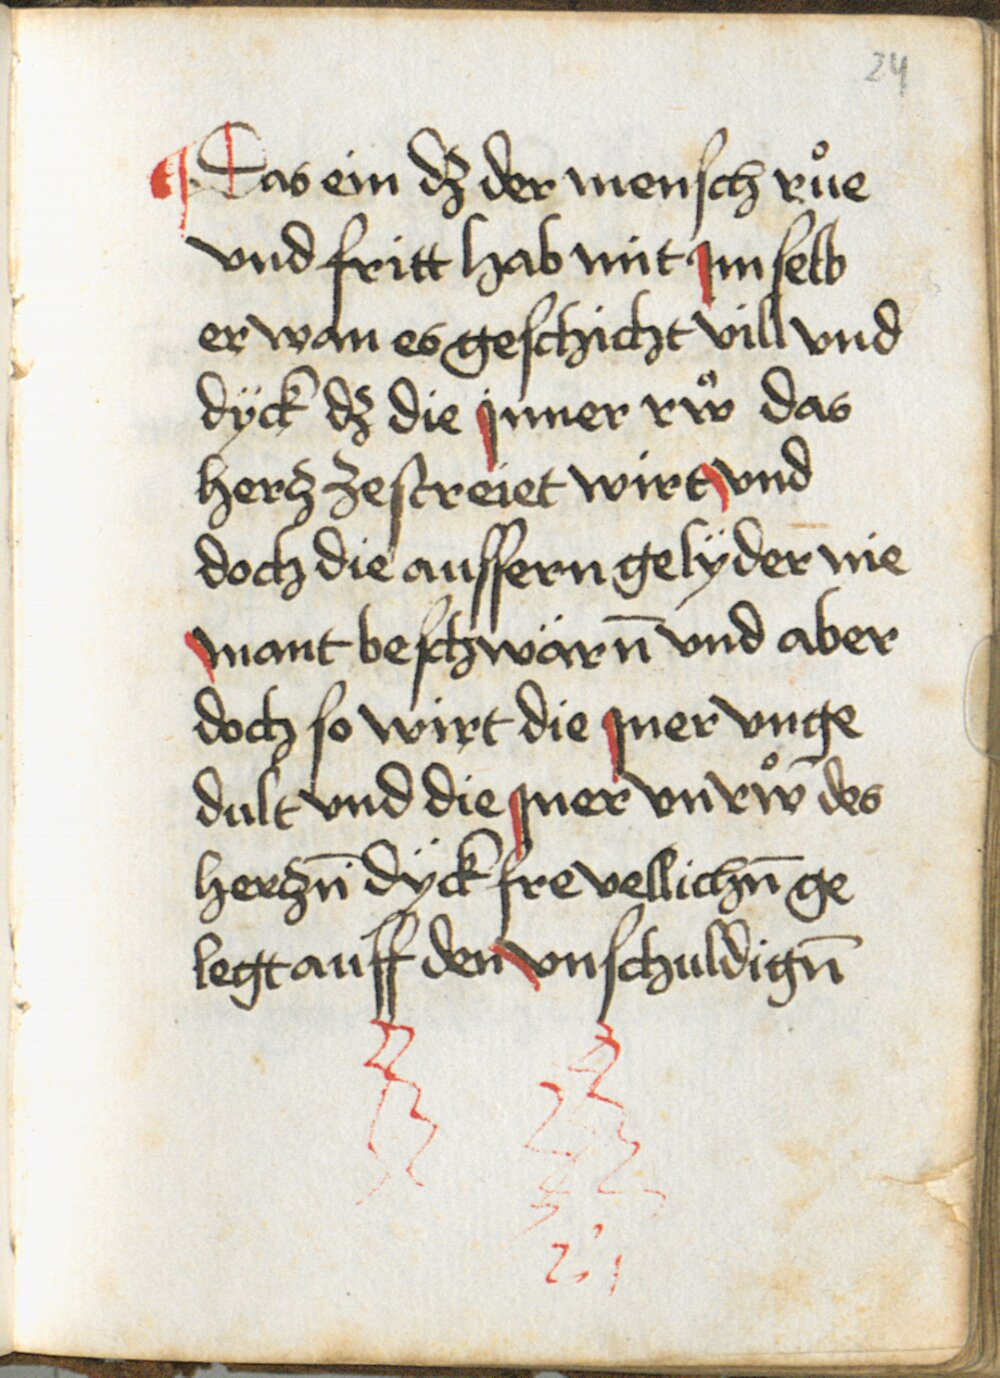 24
¶ Das ein dz der mensch růe
und fritt hab mit im selb
er wan es geschicht vill vnd
dÿck dz die inner rẘ das
hertz zestreiet wirt vnd
doch die aussern gelÿder nie
mant beschwärn̄ vnd aber
doch so wirt die iner vnge
dult vnd die iner vnrẘ des
hertzn̄ dÿck frevellichn̄ ge
legt auff den vnschuldign̄